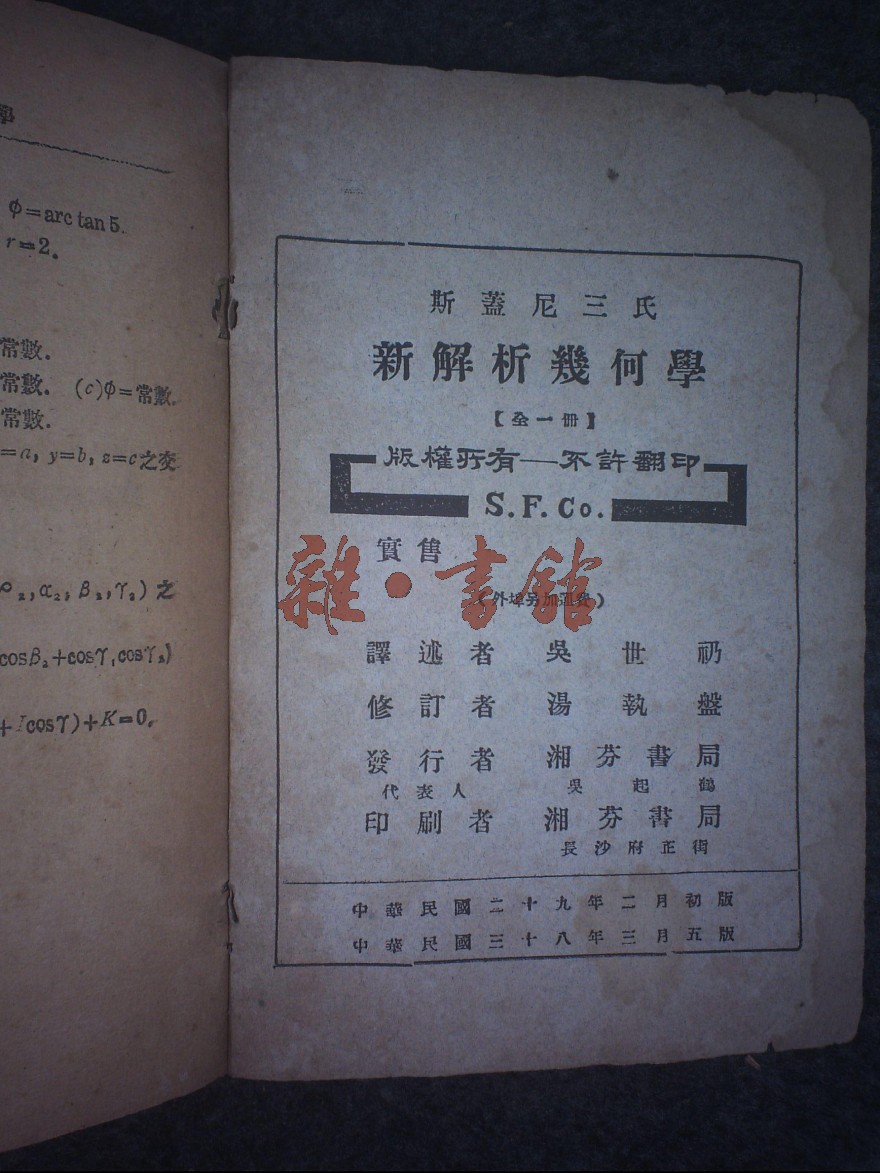 學
φ=arc tan 5.
r=2.
常數.
常數. (c)φ=常數.
常數.
=a, y=b, z=c之交
₂,α₂,β₂,γ₂)之
cosβ₂+cosγ₁cosγ₂)
cosγ)+K=0.
斯蓋尼三氏
新解析幾何學
【全一冊】
版權所有—不許翻印
S.F.Co.
實售
雜·書館
(外埠另加運費)
譯述者 吳世礽
修訂者 湯執盤
發行者 湘芬書局
代表人 吳起鶴
印刷者 湘芬書局
長沙府正街
中華民國二十九年二月初版
中華民國三十八年三月五版